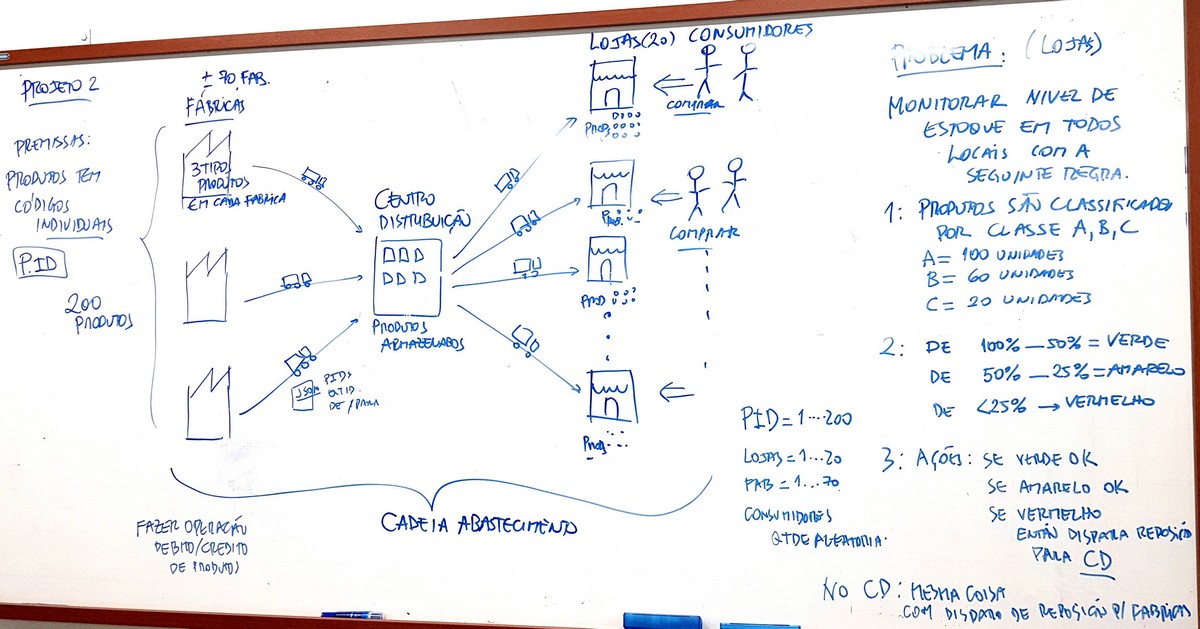 PROJETO 2
PREMISSAS:
PRODUTOS TEM
CÓDIGOS
INDIVIDUAIS
P.ID
200
PRODUTOS
± 70 FAB.
FÁBRICAS
3 TIPOS
PRODUTOS
EM CADA FABRICA
JSON
PIDS
QTID
DE/PARA
CENTRO
DISTRIBUIÇÃO
PRODUTOS
ARMAZELADOS
LOJAS(20) CONSUMIDORES
PROD.
COMPRAR
PROD.
COMPRAR
PROD
PROD.
CADEIA ABASTECIMENTO
FAZER OPERAÇÃO
DEBITO/CREDITO
DE PRODUTOS
PID = 1...200
LOJAS = 1...20
FAB = 1...70
CONSUMIDORES
QTDE ALEATORIA.
PROBLEMA: (LOJAS)
MONITORAR NIVEL DE
ESTOQUE EM TODOS
LOCAIS COM A
SEGUINTE REGRA.
1: PRODUTOS SÃO CLASSIFICADOS
POR CLASSE A, B, C
A = 100 UNIDADES
B = 60 UNIDADES
C = 20 UNIDADES
2: DE 100% — 50% = VERDE
DE 50% — 25% = AMARELO
DE <25% → VERMELHO
3: AÇÕES: SE VERDE OK
SE AMARELO OK
SE VERMELHO
ENTÃO DISPARA REPOSIÇÃO
PARA CD
NO CD: MESMA COISA
COM DISPARO DE REPOSIÇÃO P/ FABRICAS